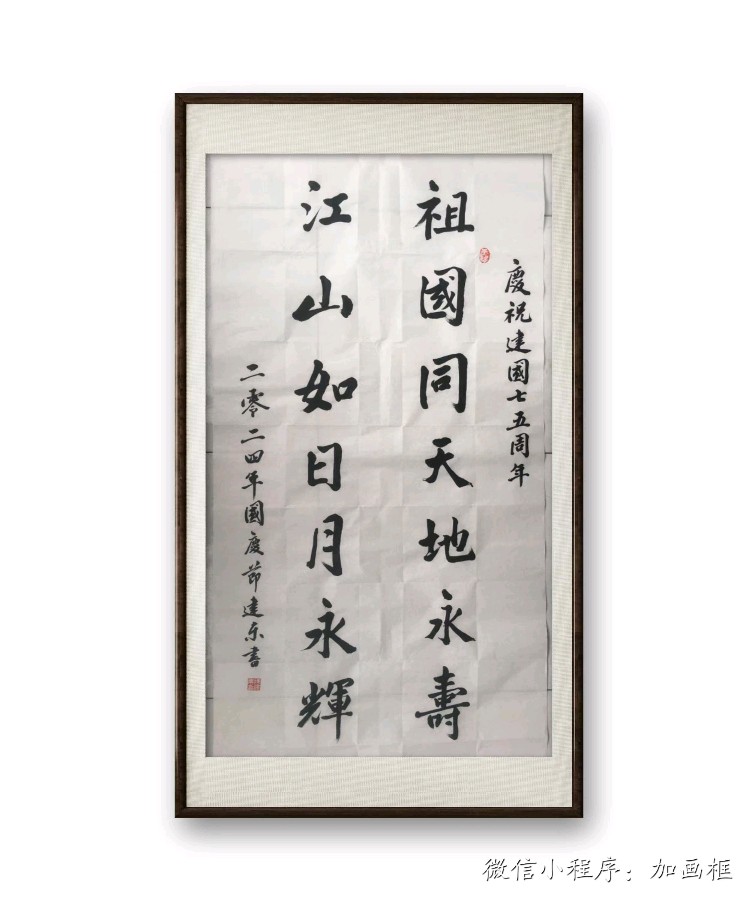 慶祝建國七五周年
祖國同天地永壽
江山如日月永輝
二零二四年國慶節建东書
微信小程序：加画框